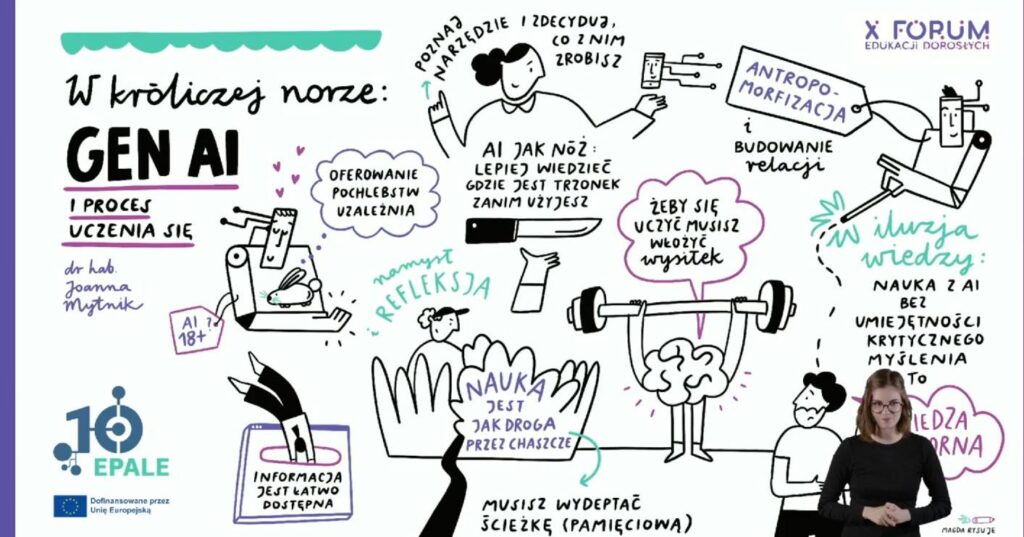 X FORUM
EDUKACJI DOROSŁYCH
W króliczej norze:
GEN AI
I PROCES
UCZENIA SIĘ
dr hab.
Joanna
Mytnik
POZNAJ
NARZĘDZIE I ZDECYDUJ,
CO Z NIM
ZROBISZ
ANTROPO-
MORFIZACJA
i
BUDOWANIE
relacji
OFEROWANIE
POCHLEBSTW
UZALEŻNIA
AI JAK NÓŻ:
LEPIEJ WIEDZIEĆ
GDZIE JEST TRZONEK
ZANIM UŻYJESZ
ŻEBY SIĘ
UCZYĆ MUSISZ
WŁOŻYĆ
wysiłek
iluzja
wiedzy:
NAUKA Z AI
BEZ
UMIEJĘTNOŚCI
KRYTYCZNEGO
MYŚLENIA
TO
namysł
i REFLEKSJA
AI?
18+
NAUKA
JEST
JAK DROGA
PRZEZ CHASZCZE
INFORMACJA
JEST ŁATWO
DOSTĘPNA
MUSISZ WYDEPTAĆ
ŚCIEŻKĘ (PAMIĘCIOWĄ)
10
EPALE
Dofinansowane przez
Unię Europejską
MAGDA RYSUJE